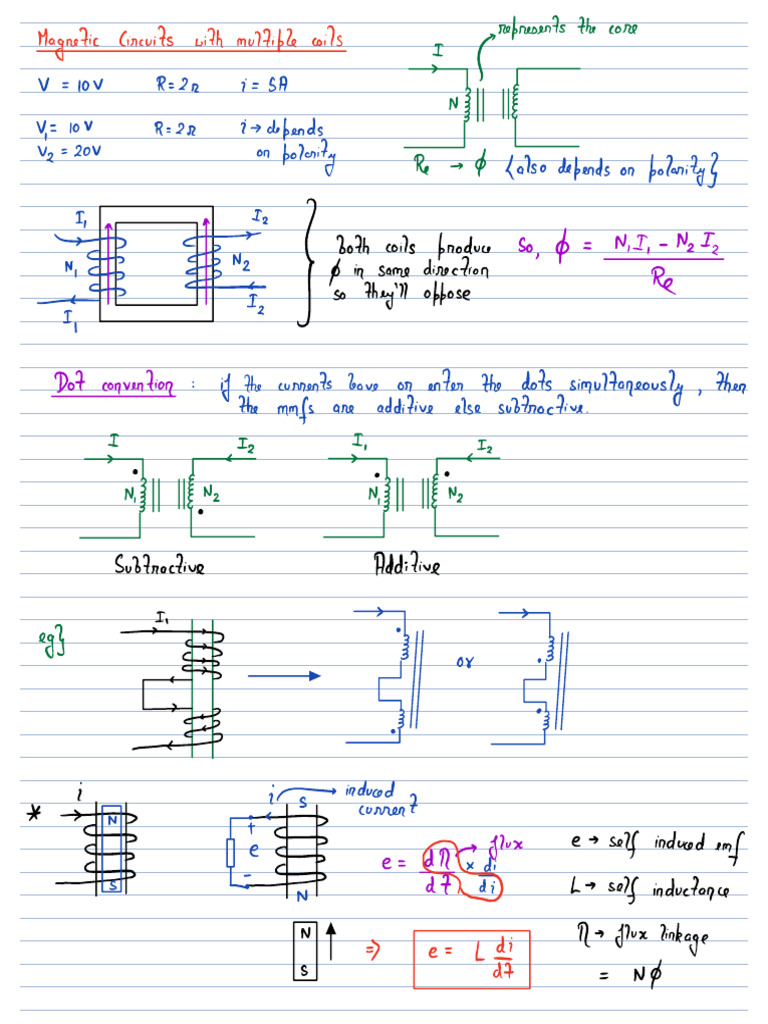 Magnetic Circuits with multiple coils
represents the core
V = 10V R = 2Ω i = 5A
I
N
V₁ = 10V R = 2Ω i → depends
V₂ = 20V on polarity
Re → ϕ {also depends on polarity}
I₁ I₂
N₁ N₂
I₁ I₂
both coils produce
ϕ in same direction
so they'll oppose
so, ϕ = N₁I₁ - N₂I₂ / Re
Dot convention : if the currents leave or enter the dots simultaneously, then
the mmfs are additive else subtractive.
I I₂ I₁ I₂
N₁ N₂ N₁ N₂
Subtractive Additive
eg}
I₁
or
* i
N
S
i → induced
current
S
+
e
-
N
e = dη/dt × di/di
flux
e → self induced emf
L → self inductance
N
S
⇒ e = L di/dt
η → flux linkage
= Nϕ